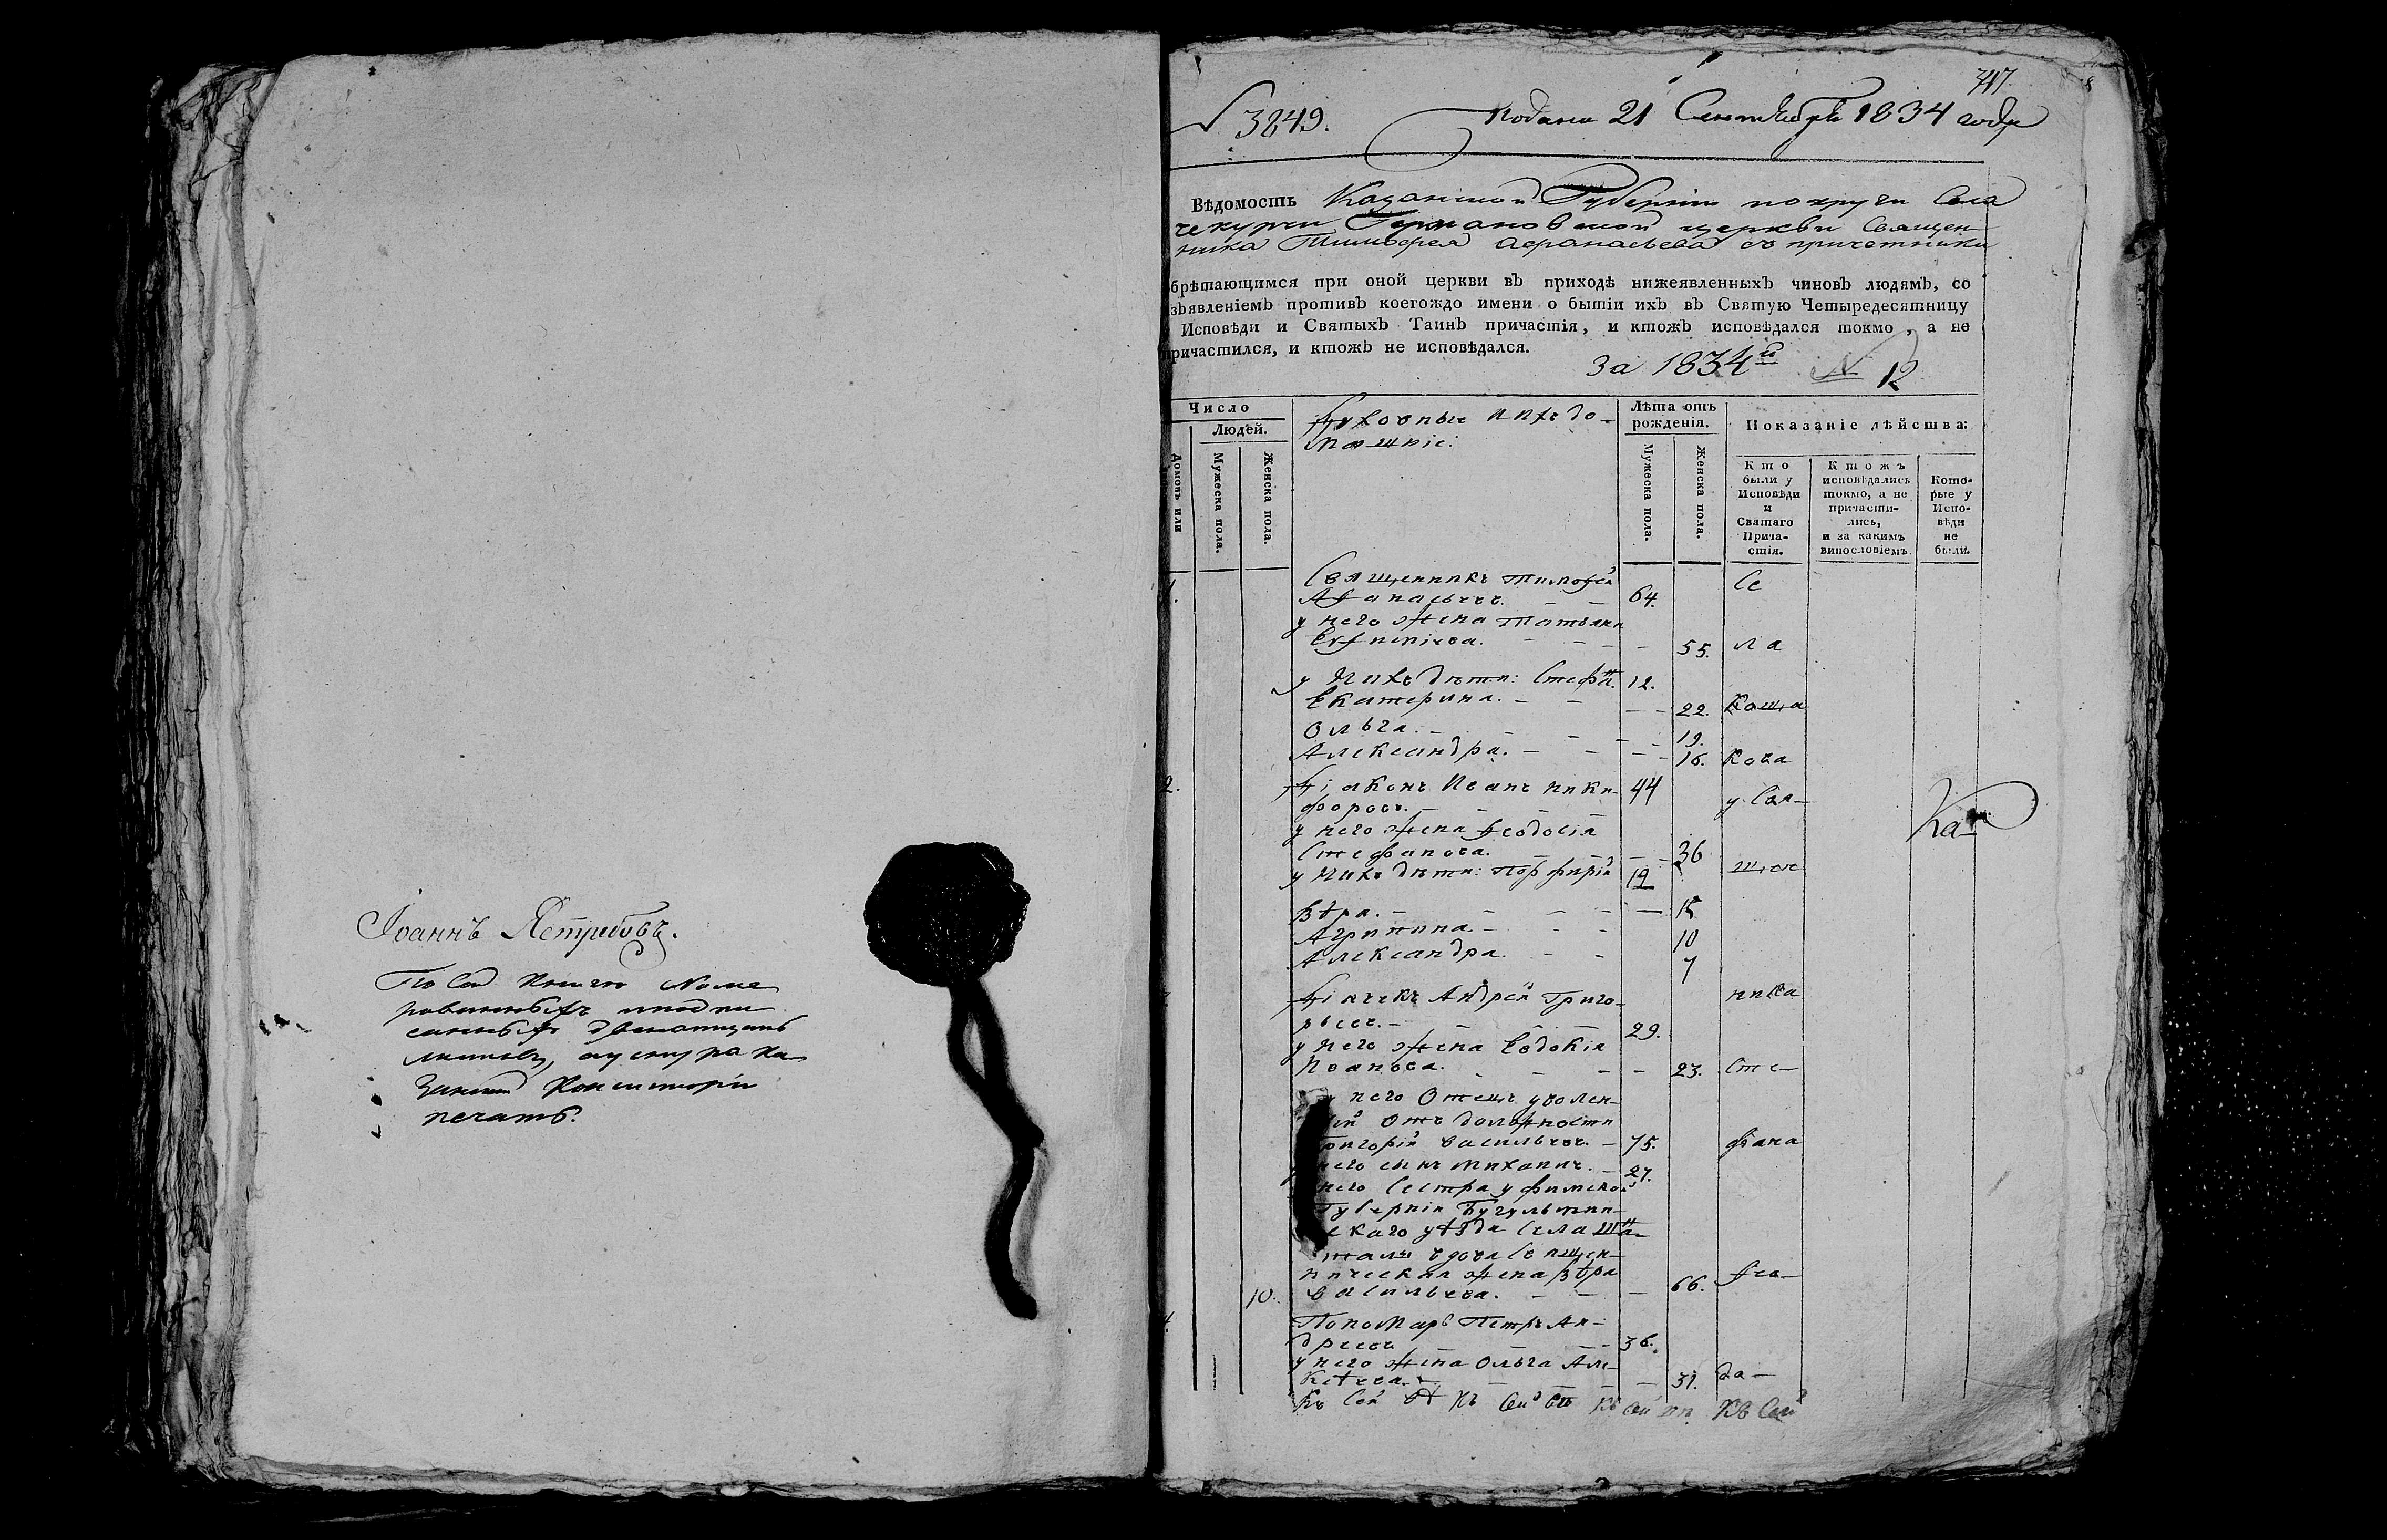 Іоаннъ Ястребовъ.
По сей книге номе
рованныхъ и подпи
санныхъ двенатцать
листовъ, а у снура ка
занской Консисторіи
печать.
717
№ 3849.
Подана 21 Сентября 1834 года
Вѣдомость Казанской Губерніи покруги Села
чекурчи Германовской церкви Священ
ника Тимофея Афанасьева съ причетники
брѣтающимся при оной церкви въ приходѣ нижеявленныхъ чиновъ людямъ, со
зъявленіемъ противъ коегождо имени о бытіи ихъ въ Святую Четыредесятницу
Исповѣди и Святыхъ Таинъ причастія, и ктожъ исповѣдался токмо, а не
причастился, и ктожъ не исповѣдался.
за 1834й N 12
Число
Людей.
Домовъ или
Мужеска пола.
Женска пола.
Духовные и ихъ до-
машніе:
Лѣта отъ
рожденія.
Мужеска пола.
Женска пола.
Показаніе дѣйства:
Кто
были у
Исповѣди
и
Святаго
Прича-
стія.
Ктожъ
исповѣдались
токмо, а не
причасти-
лись,
и за какимъ
винословіемъ.
Кото-
рые у
Испо-
вѣди
не
были.
1. Священникъ тимофей
Афанасьевъ. 64. Се
у него жена татьяна
Евфиміева. 55. ла
у нихъ дѣти: Стефн. 12.
Екатерина. 22.
Ольга. 19.
Александра. 16. кова
2. Діаконъ Иванъ ники- 44
форовъ. у Свя-
у него жена Феодосія
Стефанова. 36
у нихъ дѣти: Порфирій 12 щен
Вѣра. 15
Агрипина. 10
Александра. 7
Дьячекъ Андрей Григо- ника
рьевъ. 29.
у него жена Евдокія
Иванова. 23. Сте-
него Отецъ уволен-
ый отъ должности
григорій васильевъ. 75. фана
него сынъ михаилъ. 27.
него Сестра уфимской
Губерніи Бугульмин-
скаго уѣзда Села
вдова Священ-
ническая жена Вѣра
10. васильева. 66. Фео-
4. Пономарь Петръ Ан-
дреевъ 36.
у него жена Ольга Але-
ксѣева. 31. до-
Къ Сей Къ Сей Къ Сей Къ Сей
Ка-